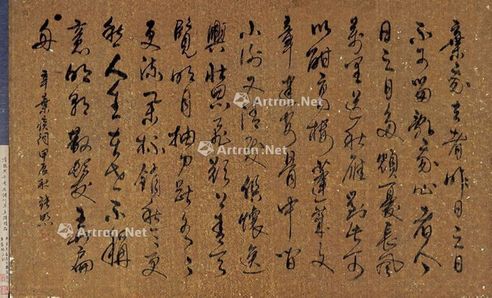 棄我去者昨日之日
不可留亂我心者今
日之日多煩憂長風
萬里送秋雁對此可
以酣高樓蓬萊文
章建安骨中間
小謝又清發俱懷逸
興壯思飛欲上青天
覽明月抽刀斷水水
更流舉杯銷愁愁更
愁人生在世不稱
意明朝散髮弄扁
舟
Artron.Net
Artron.Net
Artron.Net
Artron.Net